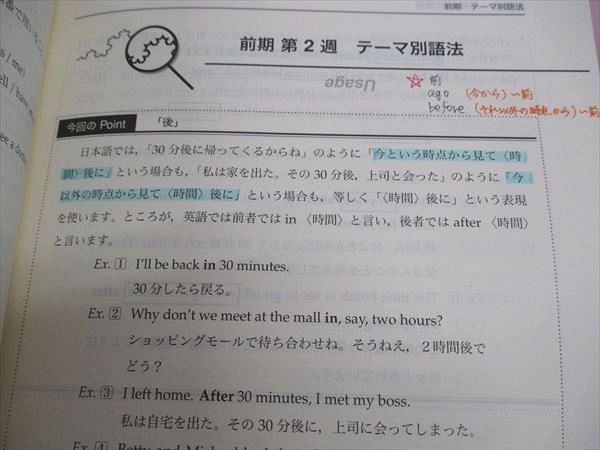 前期 テーマ別語法
前期 第2週 テーマ別語法
Usage
☆ 前
ago (今から)〜前
before (それ以外の時点から)〜前
今回の Point 「後」
日本語では,「30分後に帰ってくるからね」のように「今という時点から見て〈時
間〉後に」という場合も,「私は家を出た。その30分後,上司と会った」のように「今
以外の時点から見て〈時間〉後に」という場合も,等しく「〈時間〉後に」という表現
を使います。ところが,英語では前者では in 〈時間〉と言い,後者では after 〈時間〉
と言います。
Ex. 1 I'll be back in 30 minutes.
30分したら戻る。
Ex. 2 Why don't we meet at the mall in, say, two hours?
ショッピングモールで待ち合わせね。そうねえ,2時間後で
どう?
Ex. 3 I left home. After 30 minutes, I met my boss.
私は自宅を出た。その30分後に,上司に会ってしまった。
Ex. 4 Betty and